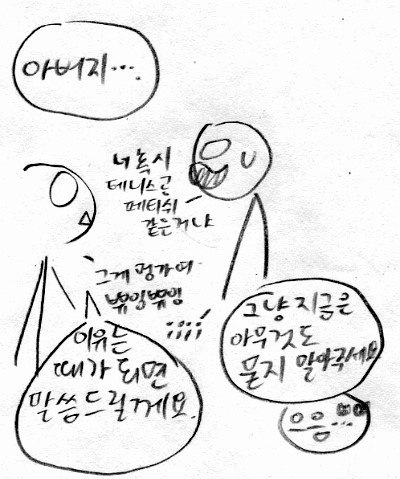 아버지....
너 혹시
테니스공
페티쉬
같은거냐
그게 멍가여
뿌잉뿌잉
;;;;
이유는
때가 되면
말씀드릴게요.
그냥 지금은
아무것도
묻지 말아주세요
으음...